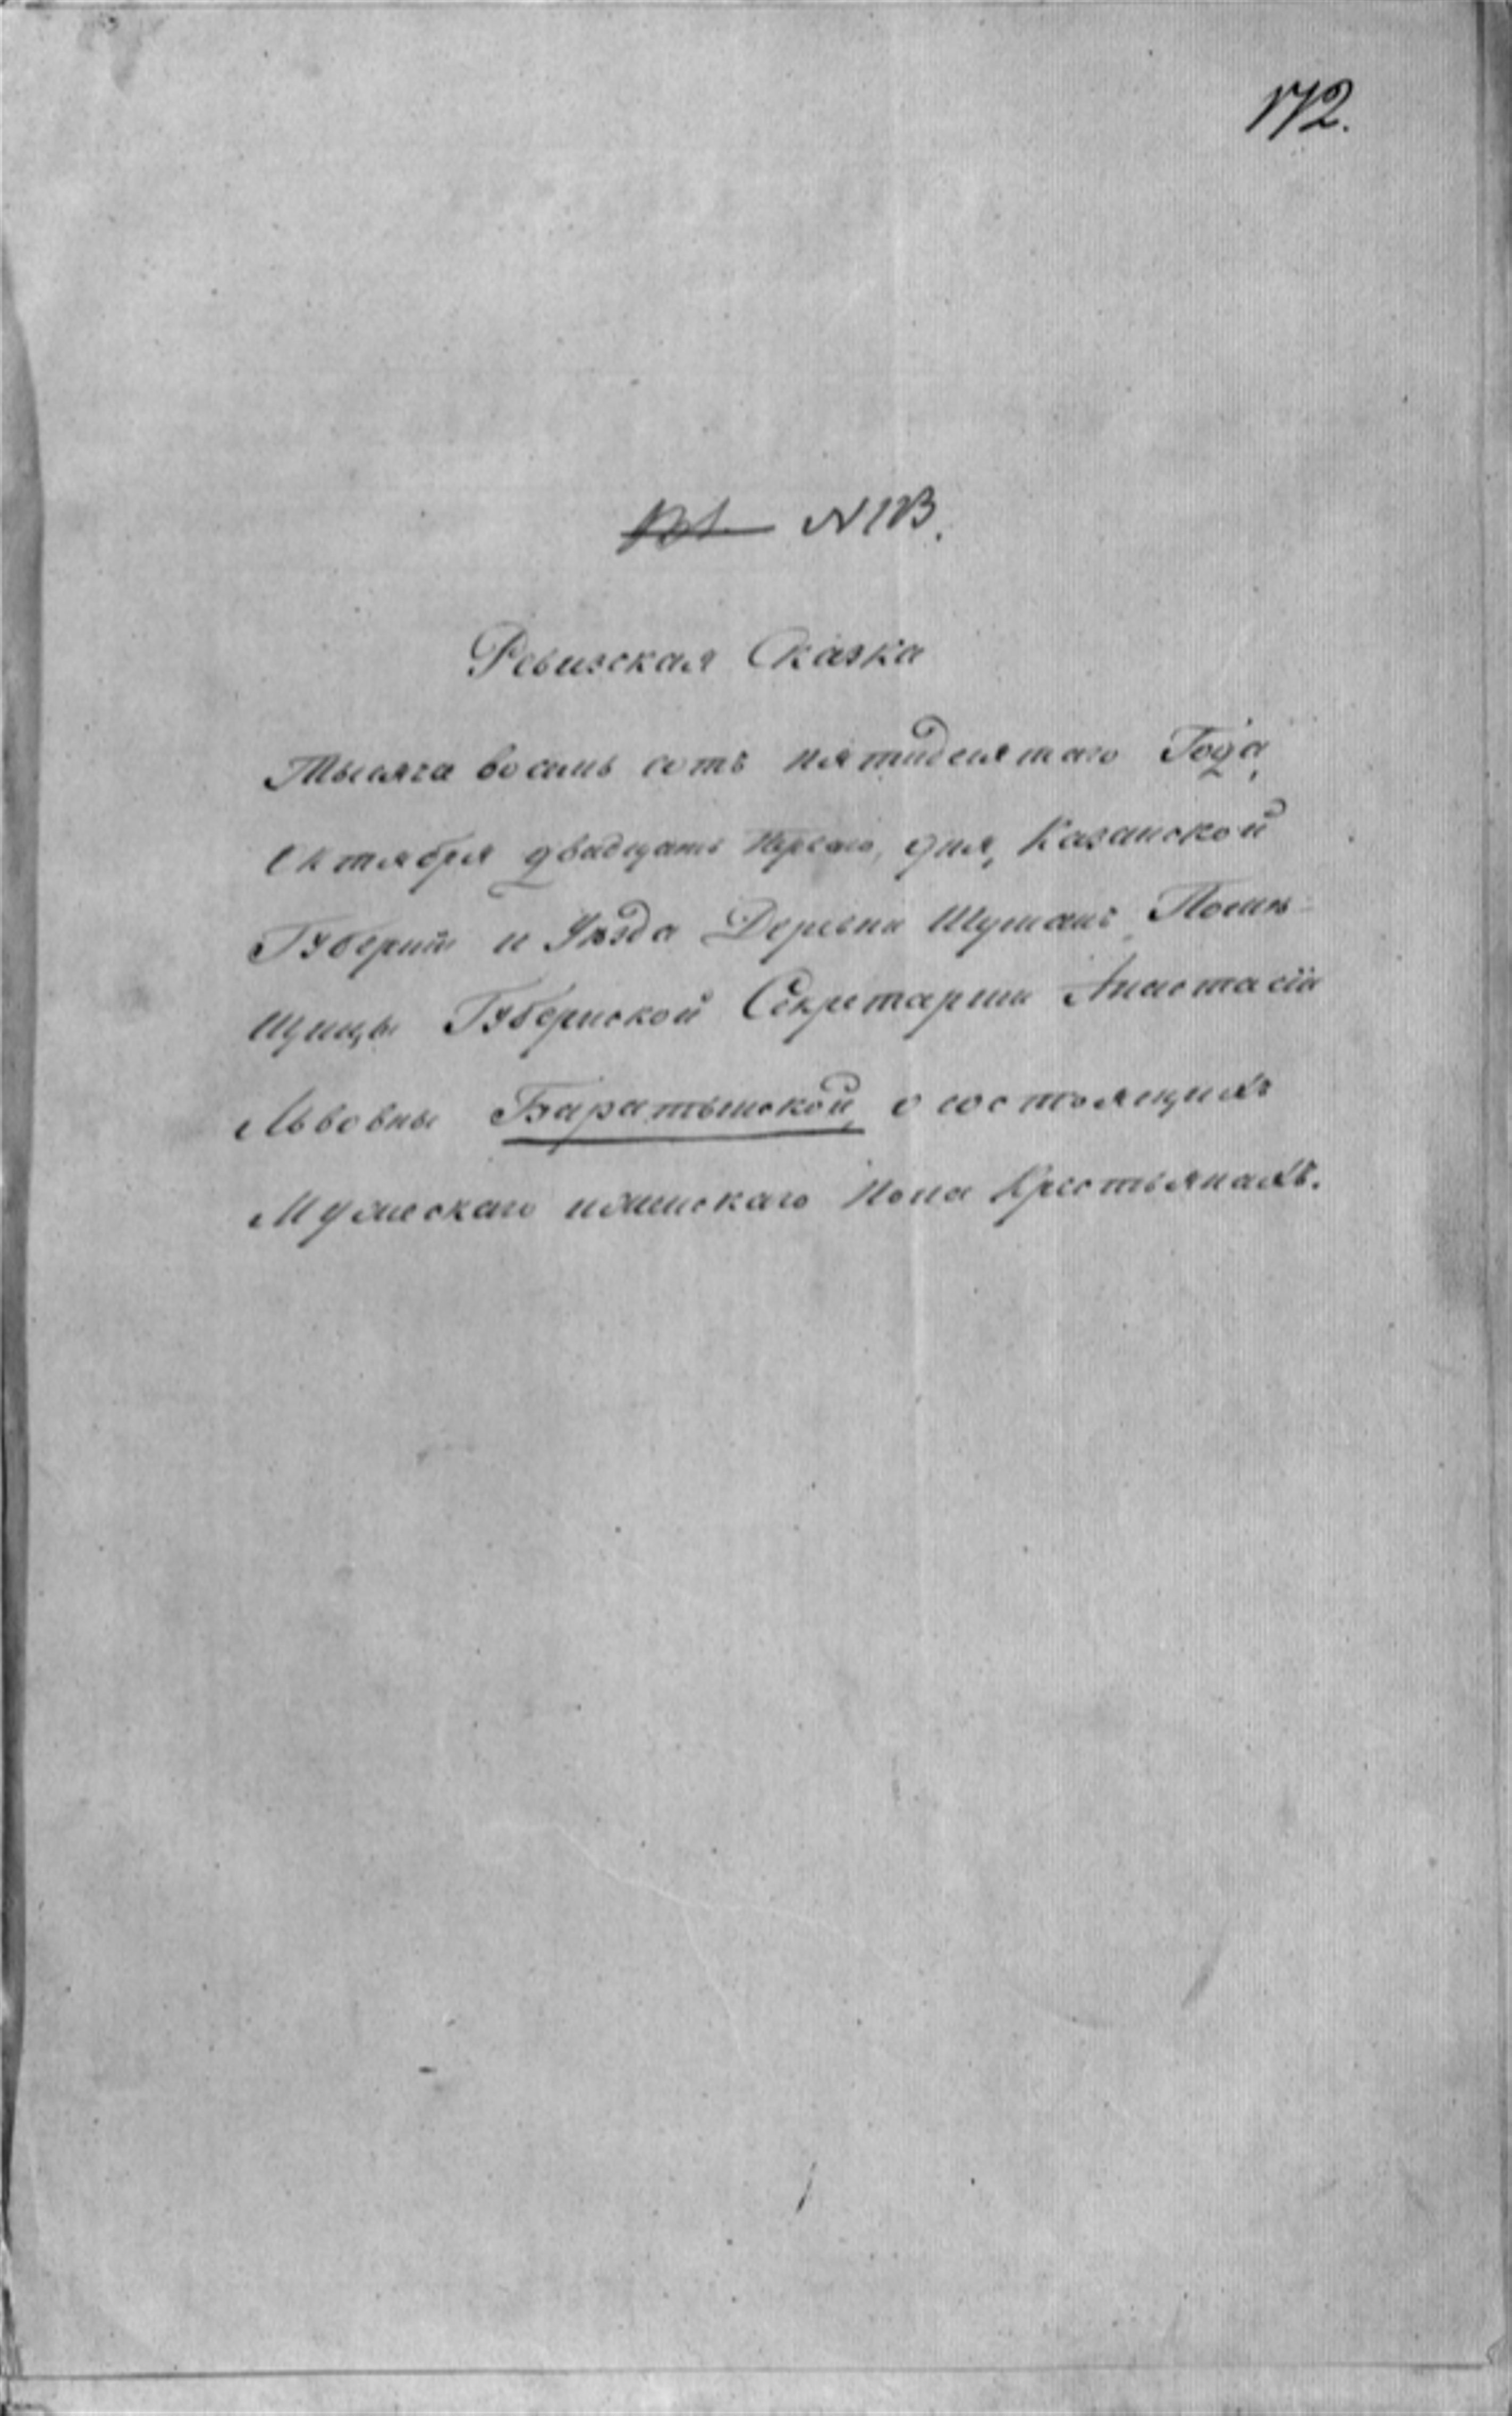 172.
N 123.
Ревизская Сказка
Тысяча восемь сотъ пятидесятаго Года
Октября двадцать перваго, дня, Казанской
Губерніи и Уѣзда Деревни Шуманъ, Помѣ-
щицы Губернской Секретарши Анастасіи
Львовны Баратынской, о состоящихъ
Мужескаго иженскаго пола Крестьянахъ.